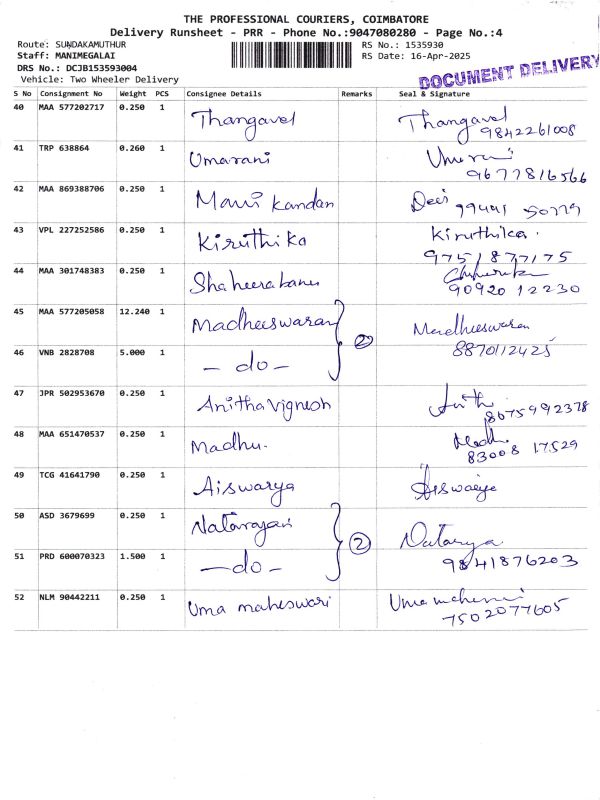 THE PROFESSIONAL COURIERS, COIMBATORE
Delivery Runsheet - PRR - Phone No.:9047080280 - Page No.:4
Route: SUNDAKAMUTHUR
Staff: MANIMEGALAI
DRS No.: DCJB153593004
Vehicle: Two Wheeler Delivery
RS No.: 1535930
RS Date: 16-Apr-2025
DOCUMENT DELIVERY
S No Consignment No Weight PCS Consignee Details Remarks Seal & Signature
40 MAA 577202717 0.250 1 Thangavel Thangavel
9842261008
41 TRP 638864 0.260 1 Umarani
9677816566
42 MAA 869388706 0.250 1 Mani Kandan
43 VPL 227252586 0.250 1 Kiruthika Kiruthika.
9751877175
44 MAA 301748383 0.250 1 Shaheerabanu
90920 12230
45 MAA 577205058 12.240 1 Madheeswaran 2 Madheeswaran
8870112425
46 VNB 2828708 5.000 1 - do -
47 JPR 502953670 0.250 1 Anitha Vignesh
8675992378
48 MAA 651470537 0.250 1 Madhu. Madhu
83008 17529
49 TCG 41641790 0.250 1 Aiswarya
50 ASD 3679699 0.250 1 Natarajan 2
51 PRD 600070323 1.500 1 - do -
9841876203
52 NLM 90442211 0.250 1 Uma maheswari
7502077605